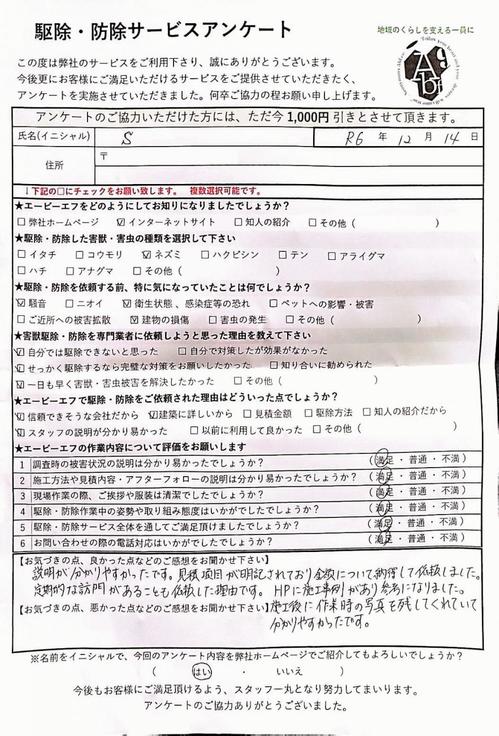 駆除・防除サービスアンケート
地域のくらしを支える一員に
この度は弊社のサービスをご利用下さり、誠にありがとうございます。
今後更にお客様にご満足いただけるサービスをご提供させていただきたく、
アンケートを実施させていただきました。何卒ご協力の程お願い申し上げます。
アンケートのご協力いただけた方には、ただ今1,000円引きとさせて頂きます。
氏名(イニシャル) S R6 年 12 月 14 日
住所 〒
↓下記の□にチェックをお願い致します。 複数選択可能です。
★エービーエフをどのようにしてお知りになりましたでしょうか?
□ 弊社ホームページ ☑ インターネットサイト □ 知人の紹介 □ その他 ( )
★駆除・防除した害獣・害虫の種類を選択して下さい
□ イタチ □ コウモリ ☑ ネズミ □ ハクビシン □ テン □ アライグマ
□ ハチ □ アナグマ □ その他 ( )
★駆除・防除を依頼する前、特に気になっていたことは何でしょうか?
☑ 騒音 □ ニオイ ☑ 衛生状態、感染症等の恐れ □ ペットへの影響・被害
□ ご近所への被害拡散 ☑ 建物の損傷 □ 害虫の発生 □ その他 ( )
★害獣駆除・防除を専門業者に依頼しようと思った理由を教えて下さい
☑ 自分では駆除できないと思った □ 自分で対策したが効果がなかった
☑ せっかく駆除するなら完璧な対策をお願いしたかった □ 知り合いに勧められた
☑ 一日も早く害獣・害虫被害を解決したかった □ その他 ( )
★エービーエフで駆除・防除をご依頼された理由はどういった点でしょうか?
☑ 信頼できそうな会社だから ☑ 建築に詳しいから □ 見積金額 □ 駆除方法 □ 知人の紹介だから
☑ スタッフの説明が分かり易かった □ 以前に利用して良かった □ その他 ( )
★エービーエフの作業内容について評価をお願いします
1 調査時の被害状況の説明は分かり易かったでしょうか? (満足・普通・不満)
2 施工方法や見積内容・アフターフォローの説明は分かり易かったでしょうか? (満足・普通・不満)
3 現場作業の際、ご挨拶や服装は清潔でしたでしょうか? (満足・普通・不満)
4 駆除・防除作業中の姿勢や取り組み態度はいかがでしたでしょうか? (満足・普通・不満)
5 駆除・防除サービス全体を通してご満足頂けましたでしょうか? (満足・普通・不満)
6 お問い合わせの際の電話対応はいかがでしたでしょうか? (満足・普通・不満)
【お気づきの点、良かった点などのご感想をお聞かせ下さい】
説明が分かりやすかったです。見積項目が明記されており金額について納得して依頼しました。
定期的な訪問があることも依頼した理由です。HPに施工事例があり参考になりました。
【お気づきの点、悪かった点などのご感想をお聞かせ下さい】
施工後に作業時の写真を残してくれていて
分かりやすかったです。
※名前をイニシャルで、今回のアンケート内容を弊社ホームページでご紹介してもよろしいでしょうか?
( はい ・ いいえ )
今後もお客様にご満足頂けるよう、スタッフ一丸となり努力してまいります。
アンケートのご協力ありがとうございました。